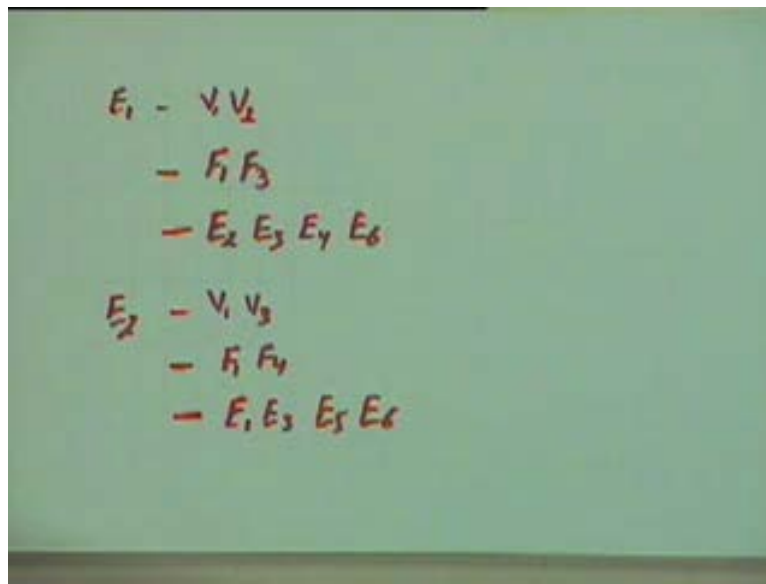 E₁ - V₁ V₂
- F₁ F₃
- E₂ E₃ E₄ E₆
E₂ - V₁ V₃
- F₁ F₄
- E₁ E₃ E₅ E₆